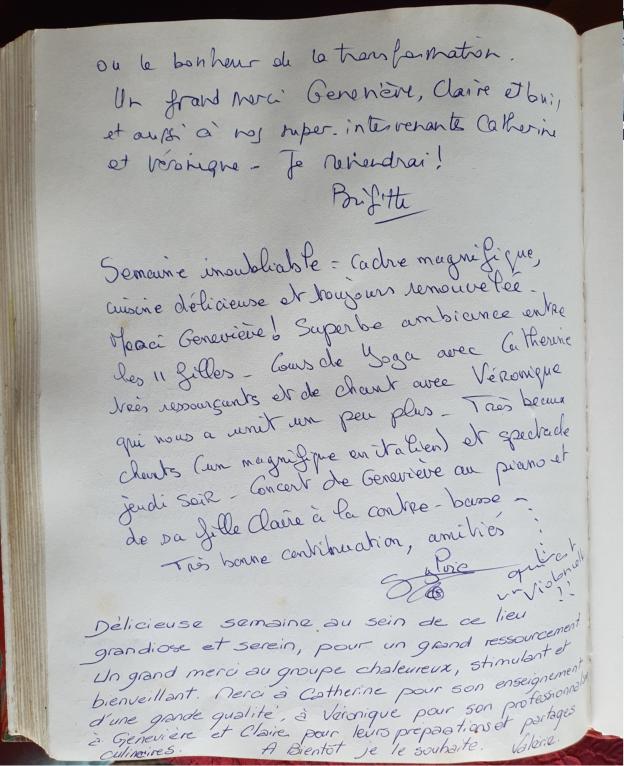 ou le bonheur de la transformation.
Un grand merci Geneviève, Claire et Loui,
et aussi à nos super-intervenantes Catherine
et Véronique - Je reviendrai !
Brigitte
Semaine inoubliable = Cadre magnifique,
cuisine délicieuse et toujours renouvelée -
Merci Geneviève ! Superbe ambiance entre
les 11 filles - Cours de Yoga avec Catherine
très ressourçants et de chant avec Véronique
qui nous a unit un peu plus - Très beaux
chants (un magnifique en italien) et spectacle
jeudi soir - Concert de Geneviève au piano et
de sa fille Claire à la contre-basse -
Très bonne continuation, amitiés
Sylvie
qui est
un Violoncelle
!!
Délicieuse semaine au sein de ce lieu
grandiose et serein, pour un grand ressourcement
Un grand merci au groupe chaleureux, stimulant et
bienveillant. Merci à Catherine pour son enseignement
d'une grande qualité, à Véronique pour son professionnalisme
à Geneviève et Claire pour leurs préparations et partages
culinaires. A Bientôt je le souhaite. Valérie.